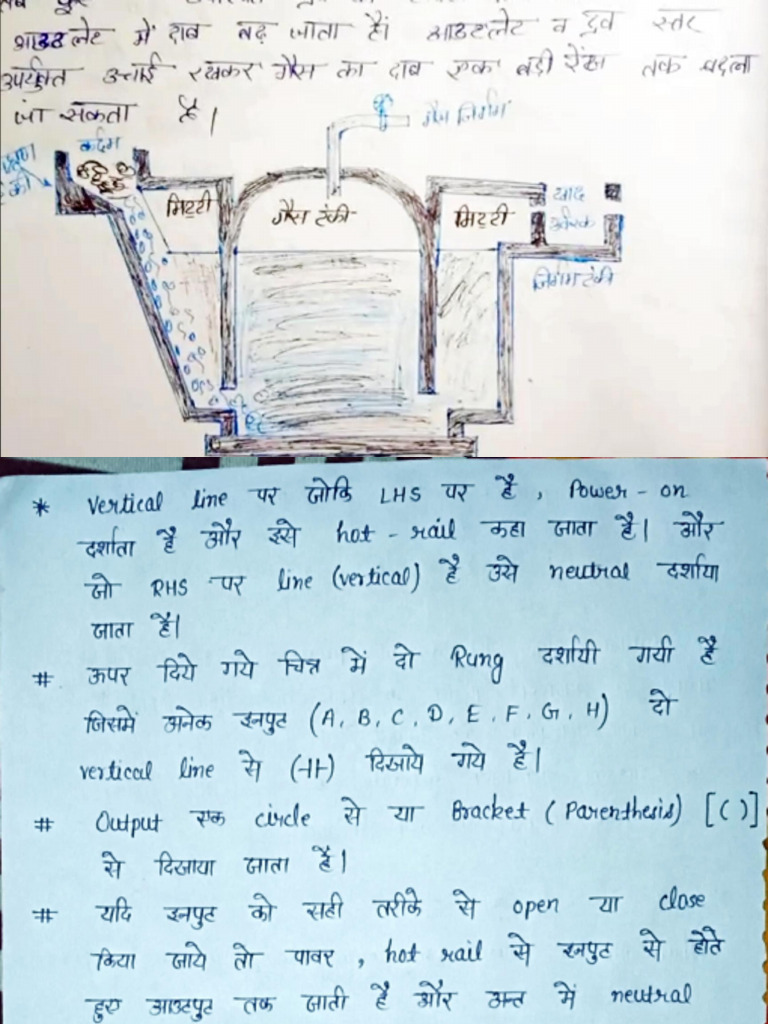 आउटलेट में दाब बढ़ जाता है। आउटलेट व द्रव स्तर
उपर्युक्त उचाई रखकर गैस का दाब एक बड़ी रेंज तक बदला
जा सकता है।
गैस निर्गम
कर्दम
मिट्टी
गैस टंकी
मिट्टी
खाद
उर्वरक
निर्गम टंकी
* Vertical line पर जोकि LHS पर है, Power-on
दर्शाता है और इसे hot-rail कहा जाता है। और
जो RHS पर line (vertical) है उसे neutral दर्शाया
जाता है।
# ऊपर दिये गये चित्र में दो Rung दर्शायी गयी है
जिसमें अनेक इनपुट (A, B, C, D, E, F, G, H) दो
vertical line से (-||-) दिखाये गये है।
# Output एक circle से या Bracket (Parenthesis) [( )]
से दिखाया जाता है।
# यदि इनपुट को सही तरीके से open या close
किया जाये तो पावर, hot rail से इनपुट से होते
हुए आउटपुट तक जाती है और अन्त में neutral